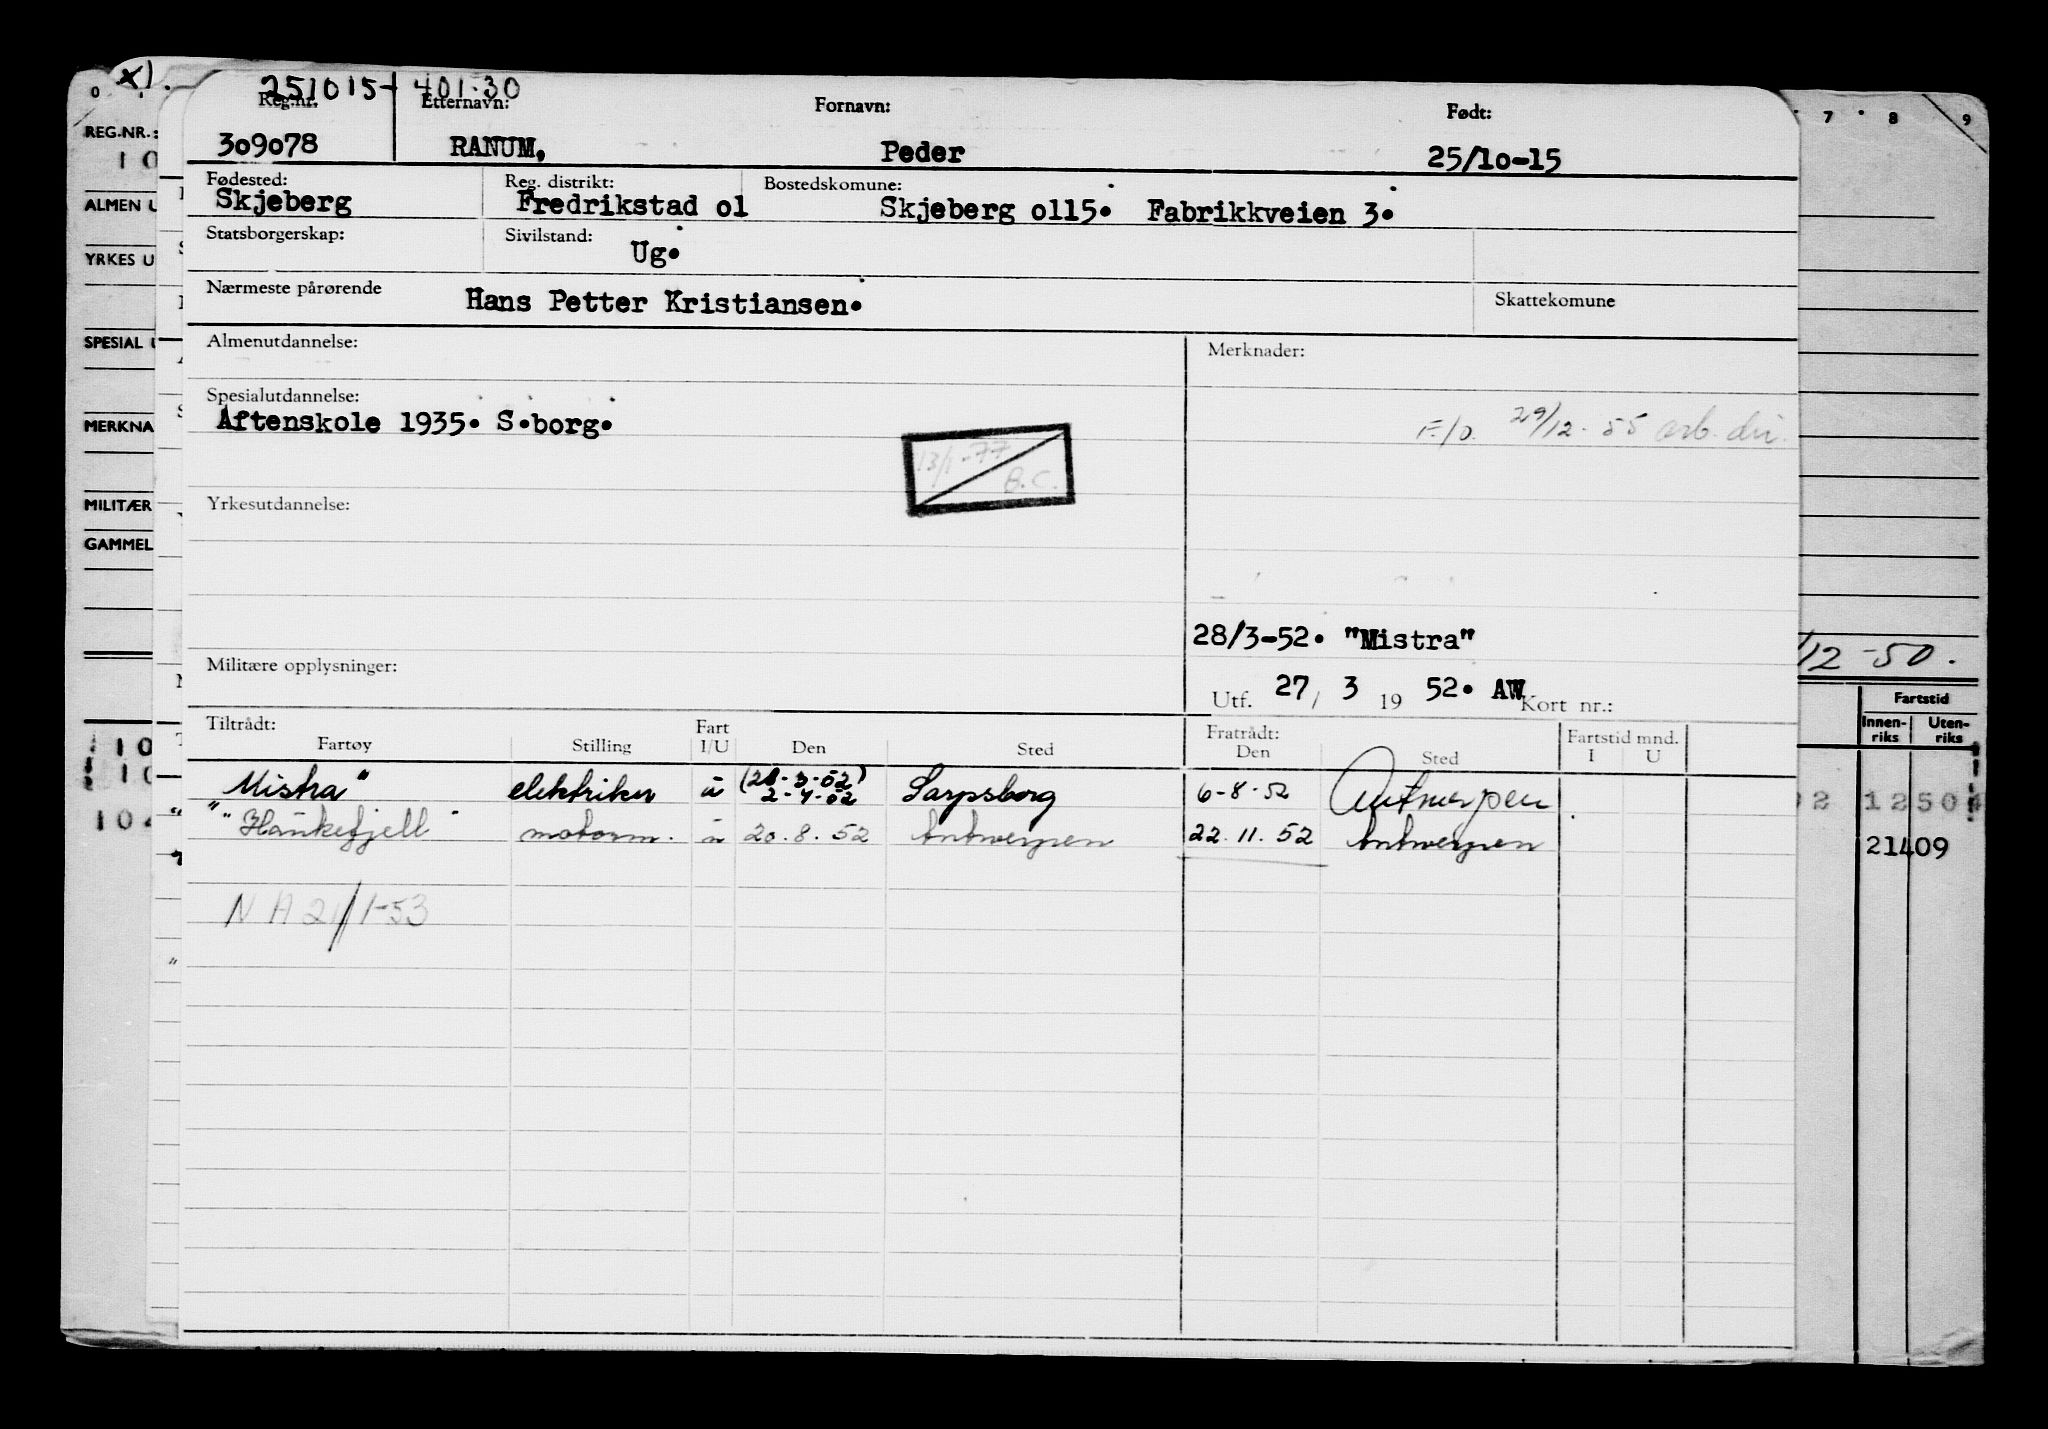 x).
251015-401.30
Reg.nr. Etternavn: Fornavn: Født:
309078 RANUM, Peder 25/10-15
Fødested: Reg. distrikt: Bostedskomune:
Skjeberg Fredrikstad o1 Skjeberg o115. Fabrikkveien 3.
Statsborgerskap: Sivilstand:
Ug.
Nærmeste pårørende Hans Petter Kristiansen. Skattekomune
Almenutdannelse: Merknader:
Spesialutdannelse:
Aftenskole 1935. S.borg.
F./O. 29/12-55 arb. dir.
13/1-77
B.C.
Yrkesutdannelse:
28/3-52. "Mistra"
Militære opplysninger:
Utf. 27/ 3 19 52. AW Kort nr.:
Tiltrådt: Fratrådt:
Fartøy Stilling Fart I/U Den Sted Den Sted Fartstid mnd. I U
Mistra" elektriker u (28-3-52) 2-4-52 Sarpsborg 6-8-52 Antwerpen
"Haukefjell" motorm. u 20.8.52 Antwerpen 22.11.52 Antwerpen
N A 21/1-53
REG.NR.:
10
ALMEN U
YRKES U
SPESIAL U
MERKNA
MILITÆR
GAMMEL
10
10
102
0
7 8 9
/12-50.
Fartstid
Innen-riks Uten-riks
02 1250
21409